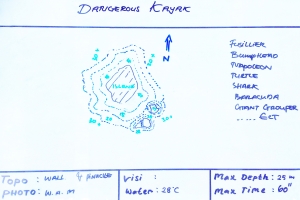 DANGEROUS KAYAK
N
FUSILIER
BUMPHEAD
NAPOLEON
TURTLE
SHARK
BARACUDA
GIANT GROUPER
..... ECT
ISLAND
TOPO : WALL &
VISI :
MAX DEPTH : 25m
PHOTO : W.A.M
WATER : 28°C
MAX TIME : 60"